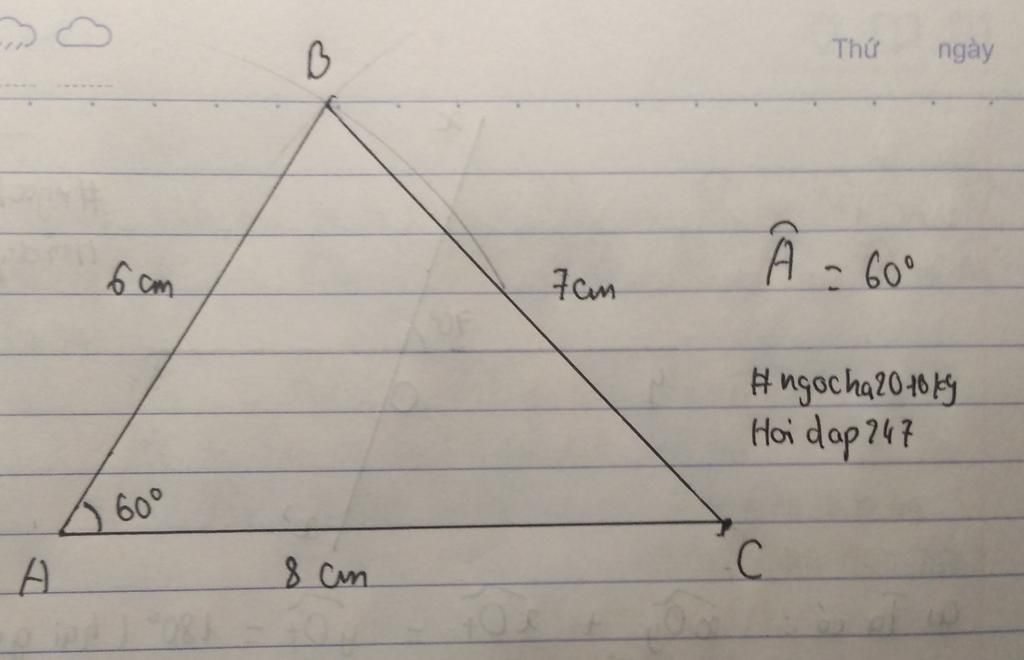 Thứ ngày
B
6 cm
7cm
Â = 60°
#ngocha2010kg
Hoi dap247
60°
A
8 cm
C